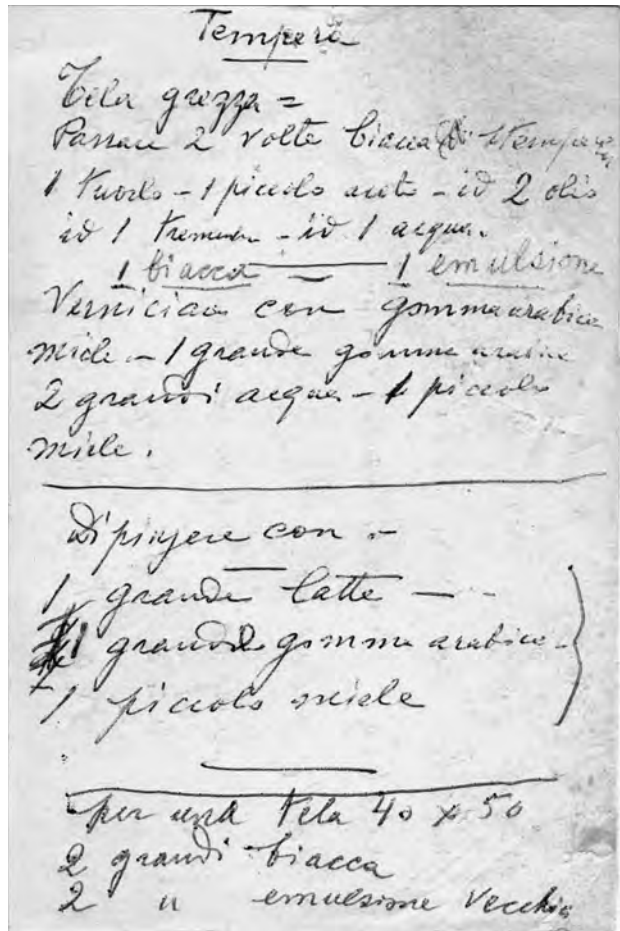 Tempera
Tela grezza =
Passare 2 volte biacca
1 tuorlo - 1 piccolo aceto - id 2 olio
id 1 - id 1 acqua.
1 biacca — 1 emulsione
Verniciare con gomma arabica
miele - 1 grande gomma arabica
2 grandi acqua - 1 piccolo
miele.
Dipingere con -
1 grande latte -
1 grande gomma arabica -
1 piccolo miele
per una tela 40 x 50
2 grandi biacca
2 " emulsione vecchia